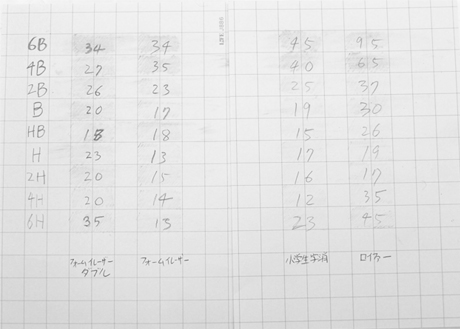 6B 34 34 45 95
4B 27 35 40 65
2B 26 23 25 37
B 20 17 19 30
HB 18 18 15 26
H 23 13 17 19
2H 20 15 16 17
4H 20 14 12 35
6H 35 13 23 45
フォームイレーザー フォームイレーザー 小学生字消 ロイヤー
ダブル